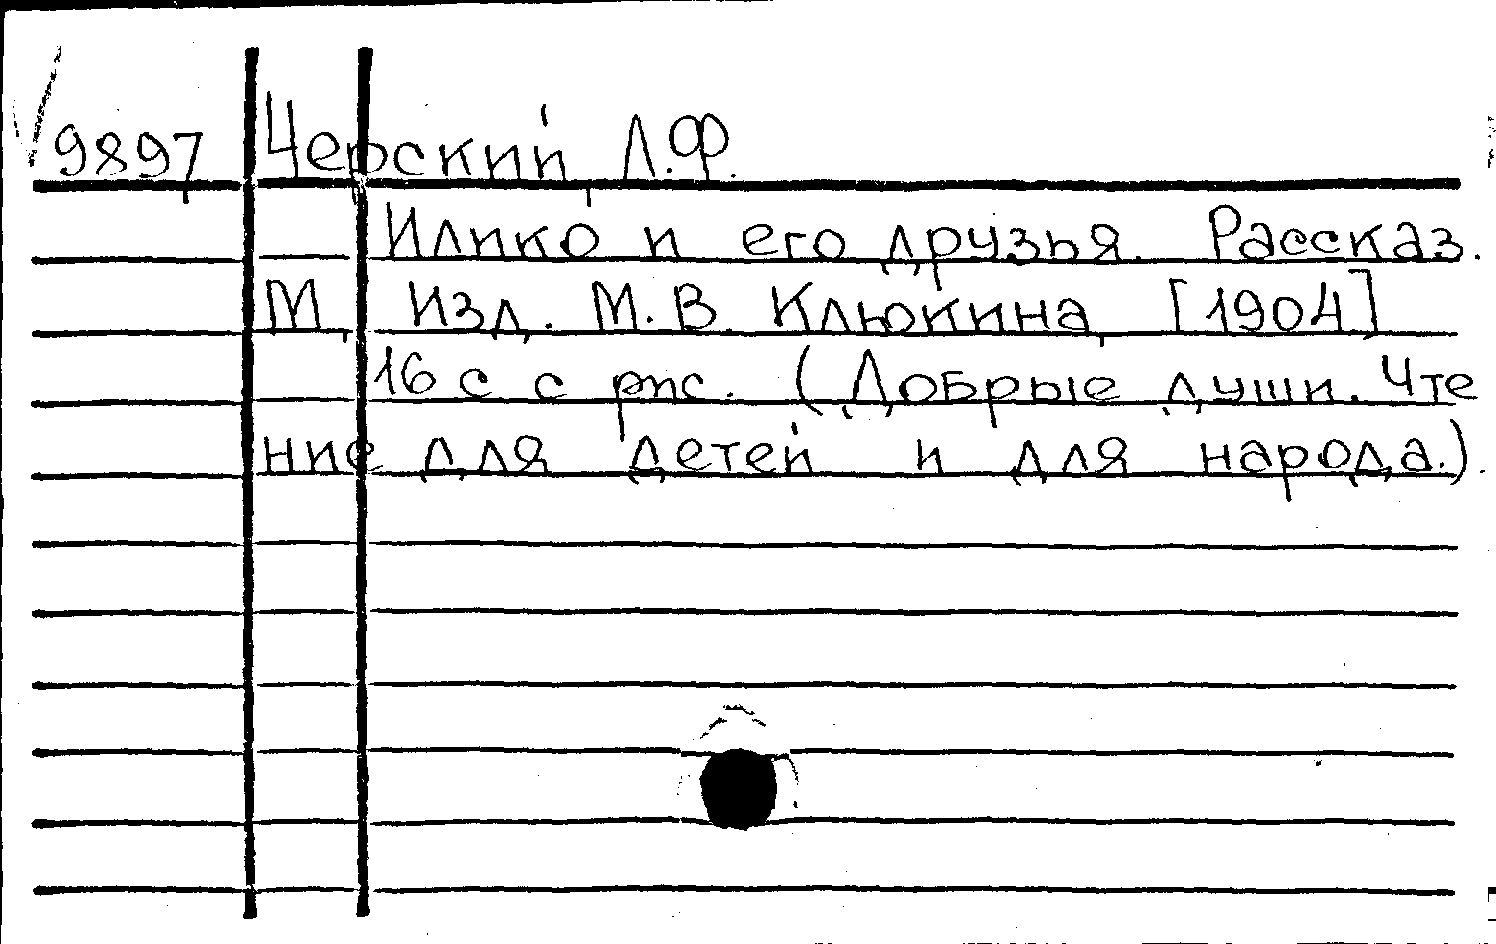 9897 Черский, Л.Ф.
Илико и его друзья. Рассказ.
М, Изд. М.В. Клюкина, [1904]
16 с с рис. (Добрые души. Чте
ние для детей и для народа.).